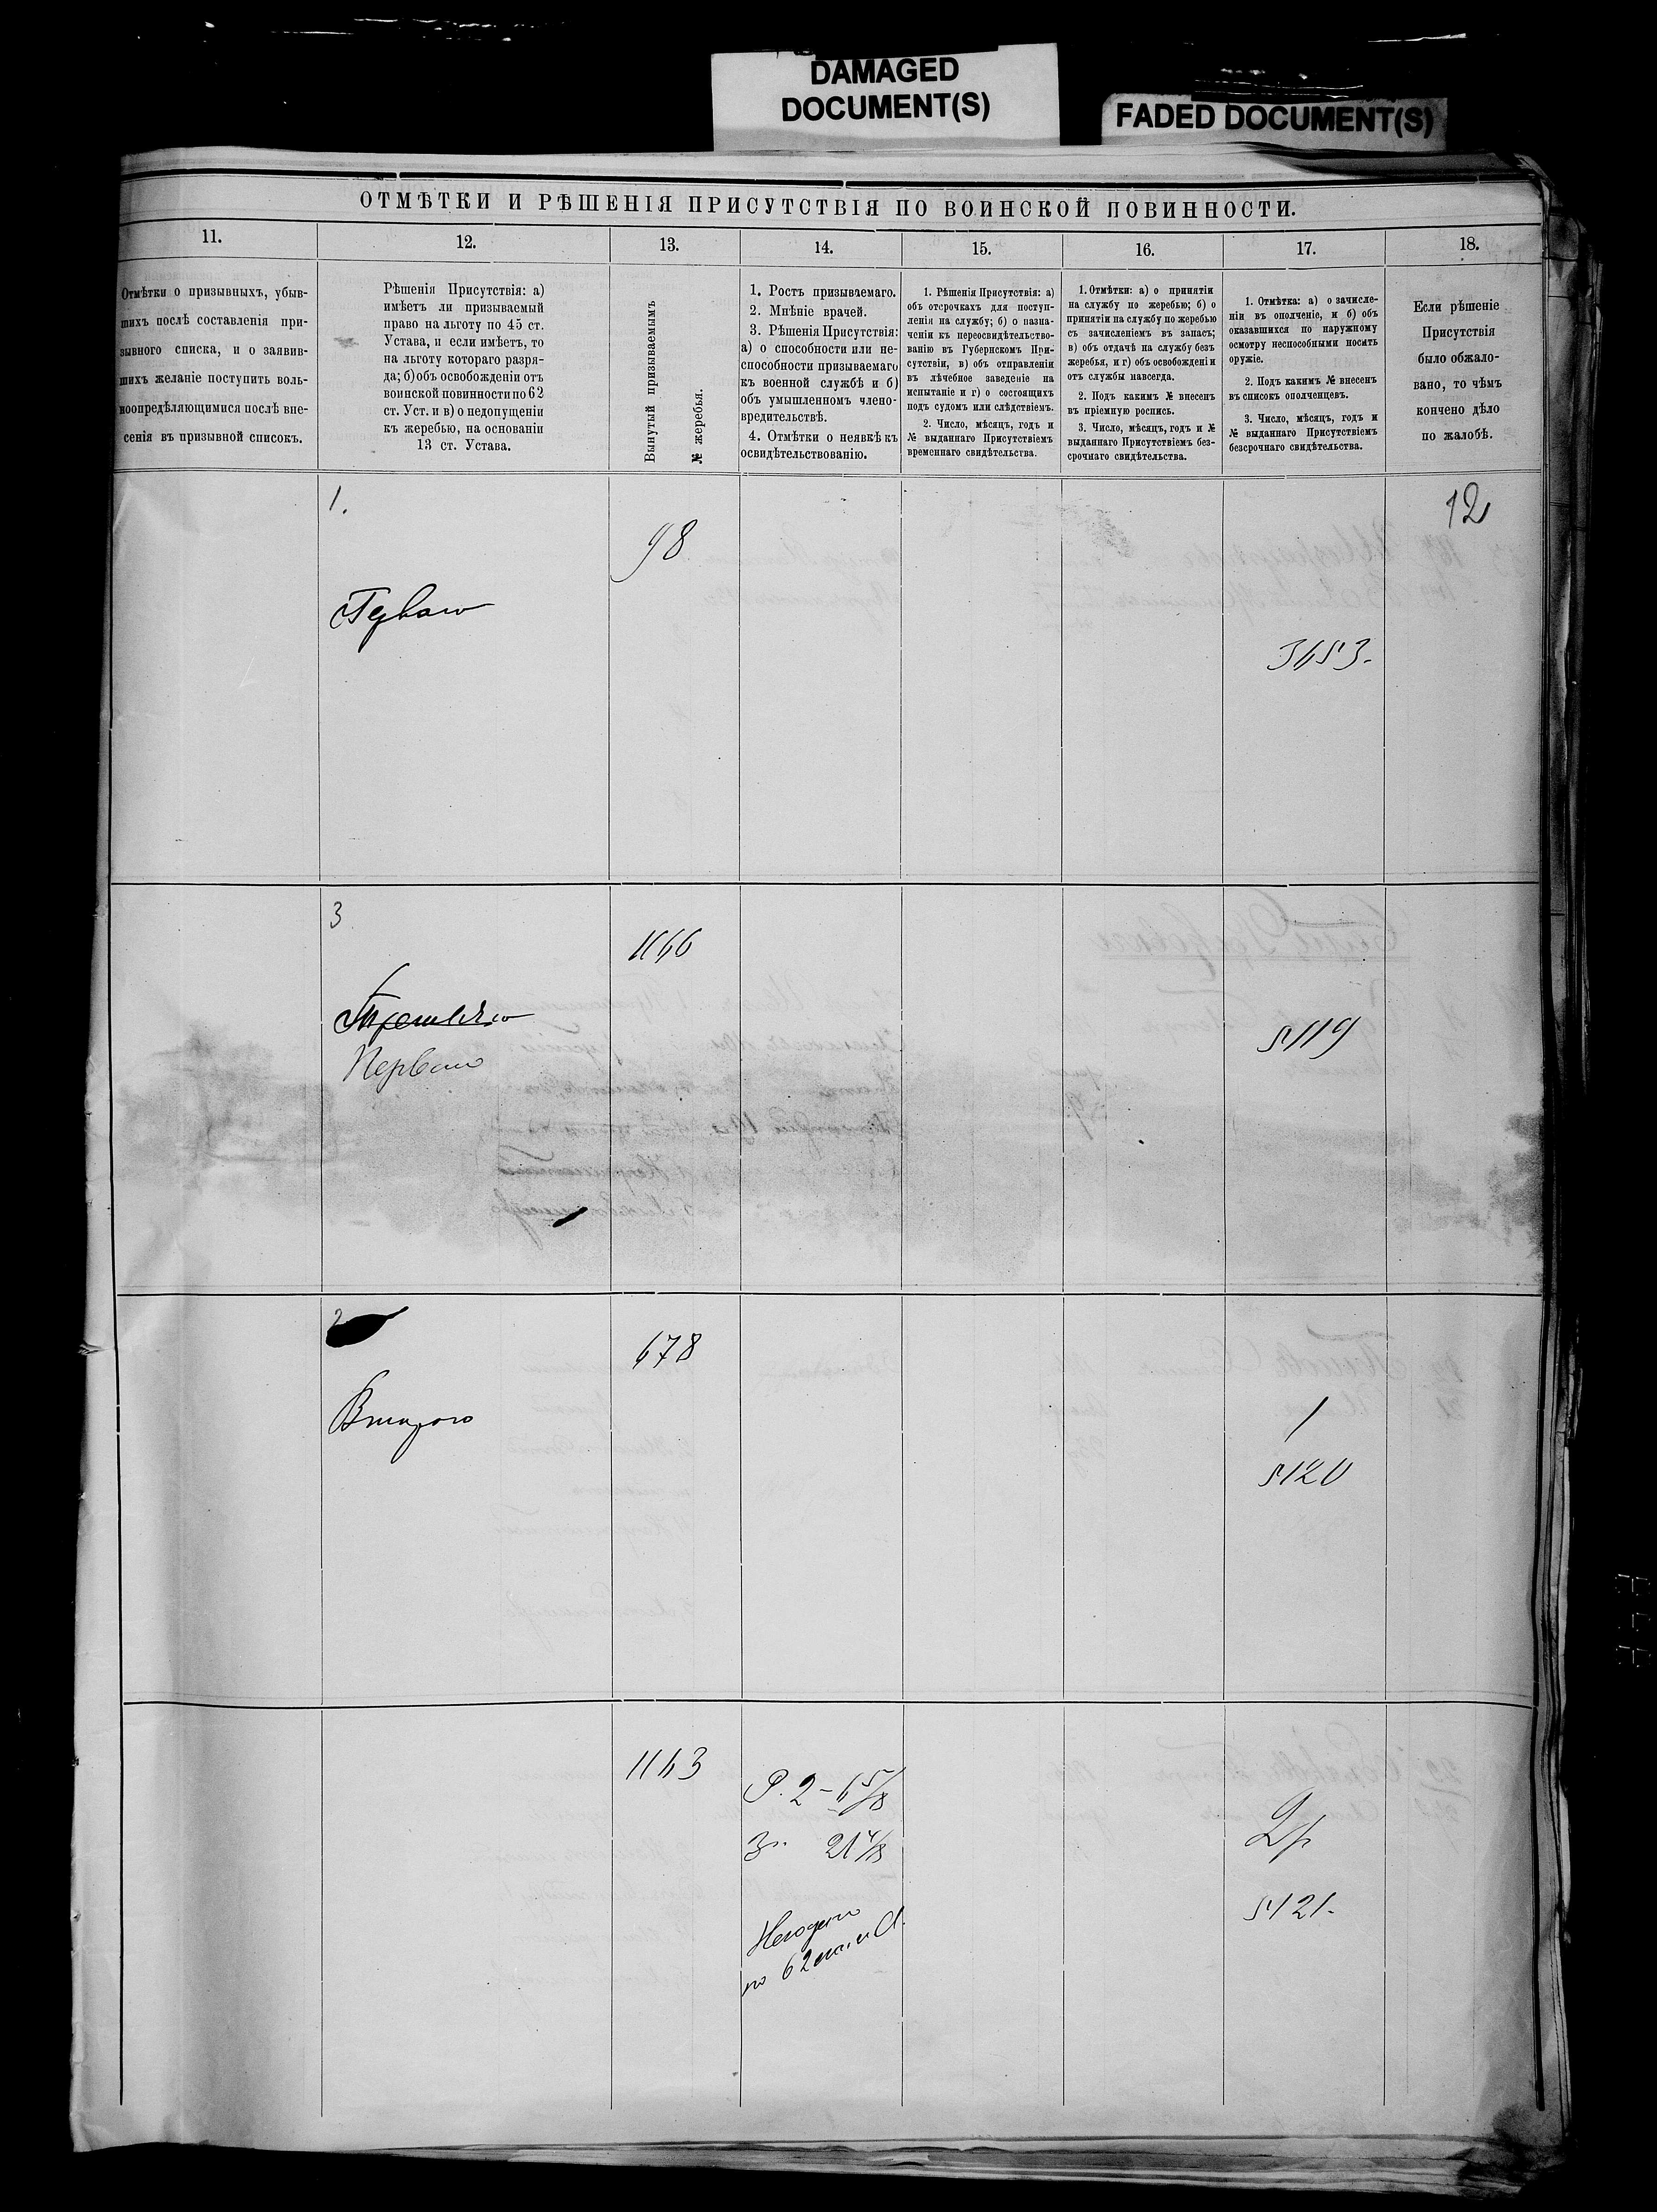 DAMAGED
DOCUMENT(S)
FADED DOCUMENT(S)
ОТМѢТКИ И РѢШЕНІЯ ПРИСУТСТВІЯ ПО ВОИНСКОЙ ПОВИННОСТИ.
11.
12.
13.
14.
15.
16.
17.
18.
Отмѣтки о призывныхъ, убыв-
шихъ послѣ составленія при-
зывного списка, и о заявив-
шихъ желаніе поступить воль-
ноопредѣляющимися послѣ вне-
сенія въ призывной списокъ.
Рѣшенія Присутствія: а)
имѣетъ ли призываемый
право на льготу по 45 ст.
Устава, и если имѣетъ, то
на льготу котораго разря-
да; б) объ освобожденіи отъ
воинской повинности по 62
ст. Уст. и в) о недопущеніи
къ жеребью, на основаніи
13 ст. Устава.
Вынутый призываемымъ
№ жеребья.
1. Ростъ призываемаго.
2. Мнѣніе врачей.
3. Рѣшенія Присутствія:
а) о способности или не-
способности призываемаго
къ военной службѣ и б)
объ умышленномъ члено-
вредительствѣ.
4. Отмѣтки о неявкѣ къ
освидѣтельствованію.
1. Рѣшенія Присутствія: а)
объ отсрочкахъ для поступ-
ленія на службу; б) о назна-
ченіи къ переосвидѣтельство-
ванію въ Губернскомъ При-
сутствіи, в) объ отправленіи
въ лѣчебное заведеніе на
испытаніе и г) о состоящихъ
подъ судомъ или слѣдствіемъ.
2. Число, мѣсяцъ, годъ и
№ выданнаго Присутствіемъ
временнаго свидѣтельства.
1. Отмѣтки: а) о принятіи
на службу по жеребью; б) о
принятіи на службу по жеребью
съ зачисленіемъ въ запасъ;
в) объ отдачѣ на службу безъ
жеребья, и г) объ освобожденіи
отъ службы навсегда.
2. Подъ какимъ № внесенъ
въ пріемную роспись.
3. Число, мѣсяцъ, годъ и №
выданнаго Присутствіемъ без-
срочнаго свидѣтельства.
1. Отмѣтка: а) о зачисле-
ніи въ ополченіе, и б) объ
оказавшихся по наружному
осмотру неспособными носить
оружіе.
2. Подъ какимъ № внесенъ
въ списокъ ополченцевъ.
3. Число, мѣсяцъ, годъ и
№ выданнаго Присутствіемъ
безсрочнаго свидѣтельства.
Если рѣшеніе
Присутствія
было обжало-
вано, то чѣмъ
кончено дѣло
по жалобѣ.
1.
98
12
3453.
3
1166
Перваго
5119
2
678
Втораго
1
5120
1143
Р. 2 - 6 5/8
21 4/8
Негоденъ
по 62
5121.